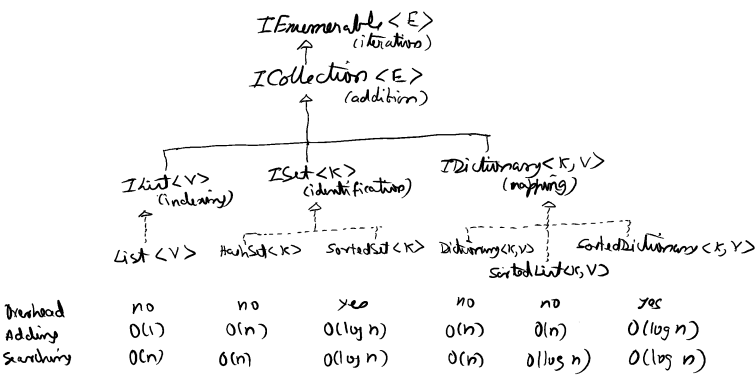 IEnumerable<E>
(iteration)
ICollection<E>
(addition)
IList<V>
(indexing)
ISet<K>
(identification)
IDictionary<K,V>
(mapping)
List<V>
HashSet<K>
SortedSet<K>
Dictionary<K,V>
SortedList<K,V>
SortedDictionary<K,V>
Overhead no no yes no no yes
Adding O(1) O(n) O(log n) O(n) O(n) O(log n)
Searching O(n) O(n) O(log n) O(n) O(log n) O(log n)